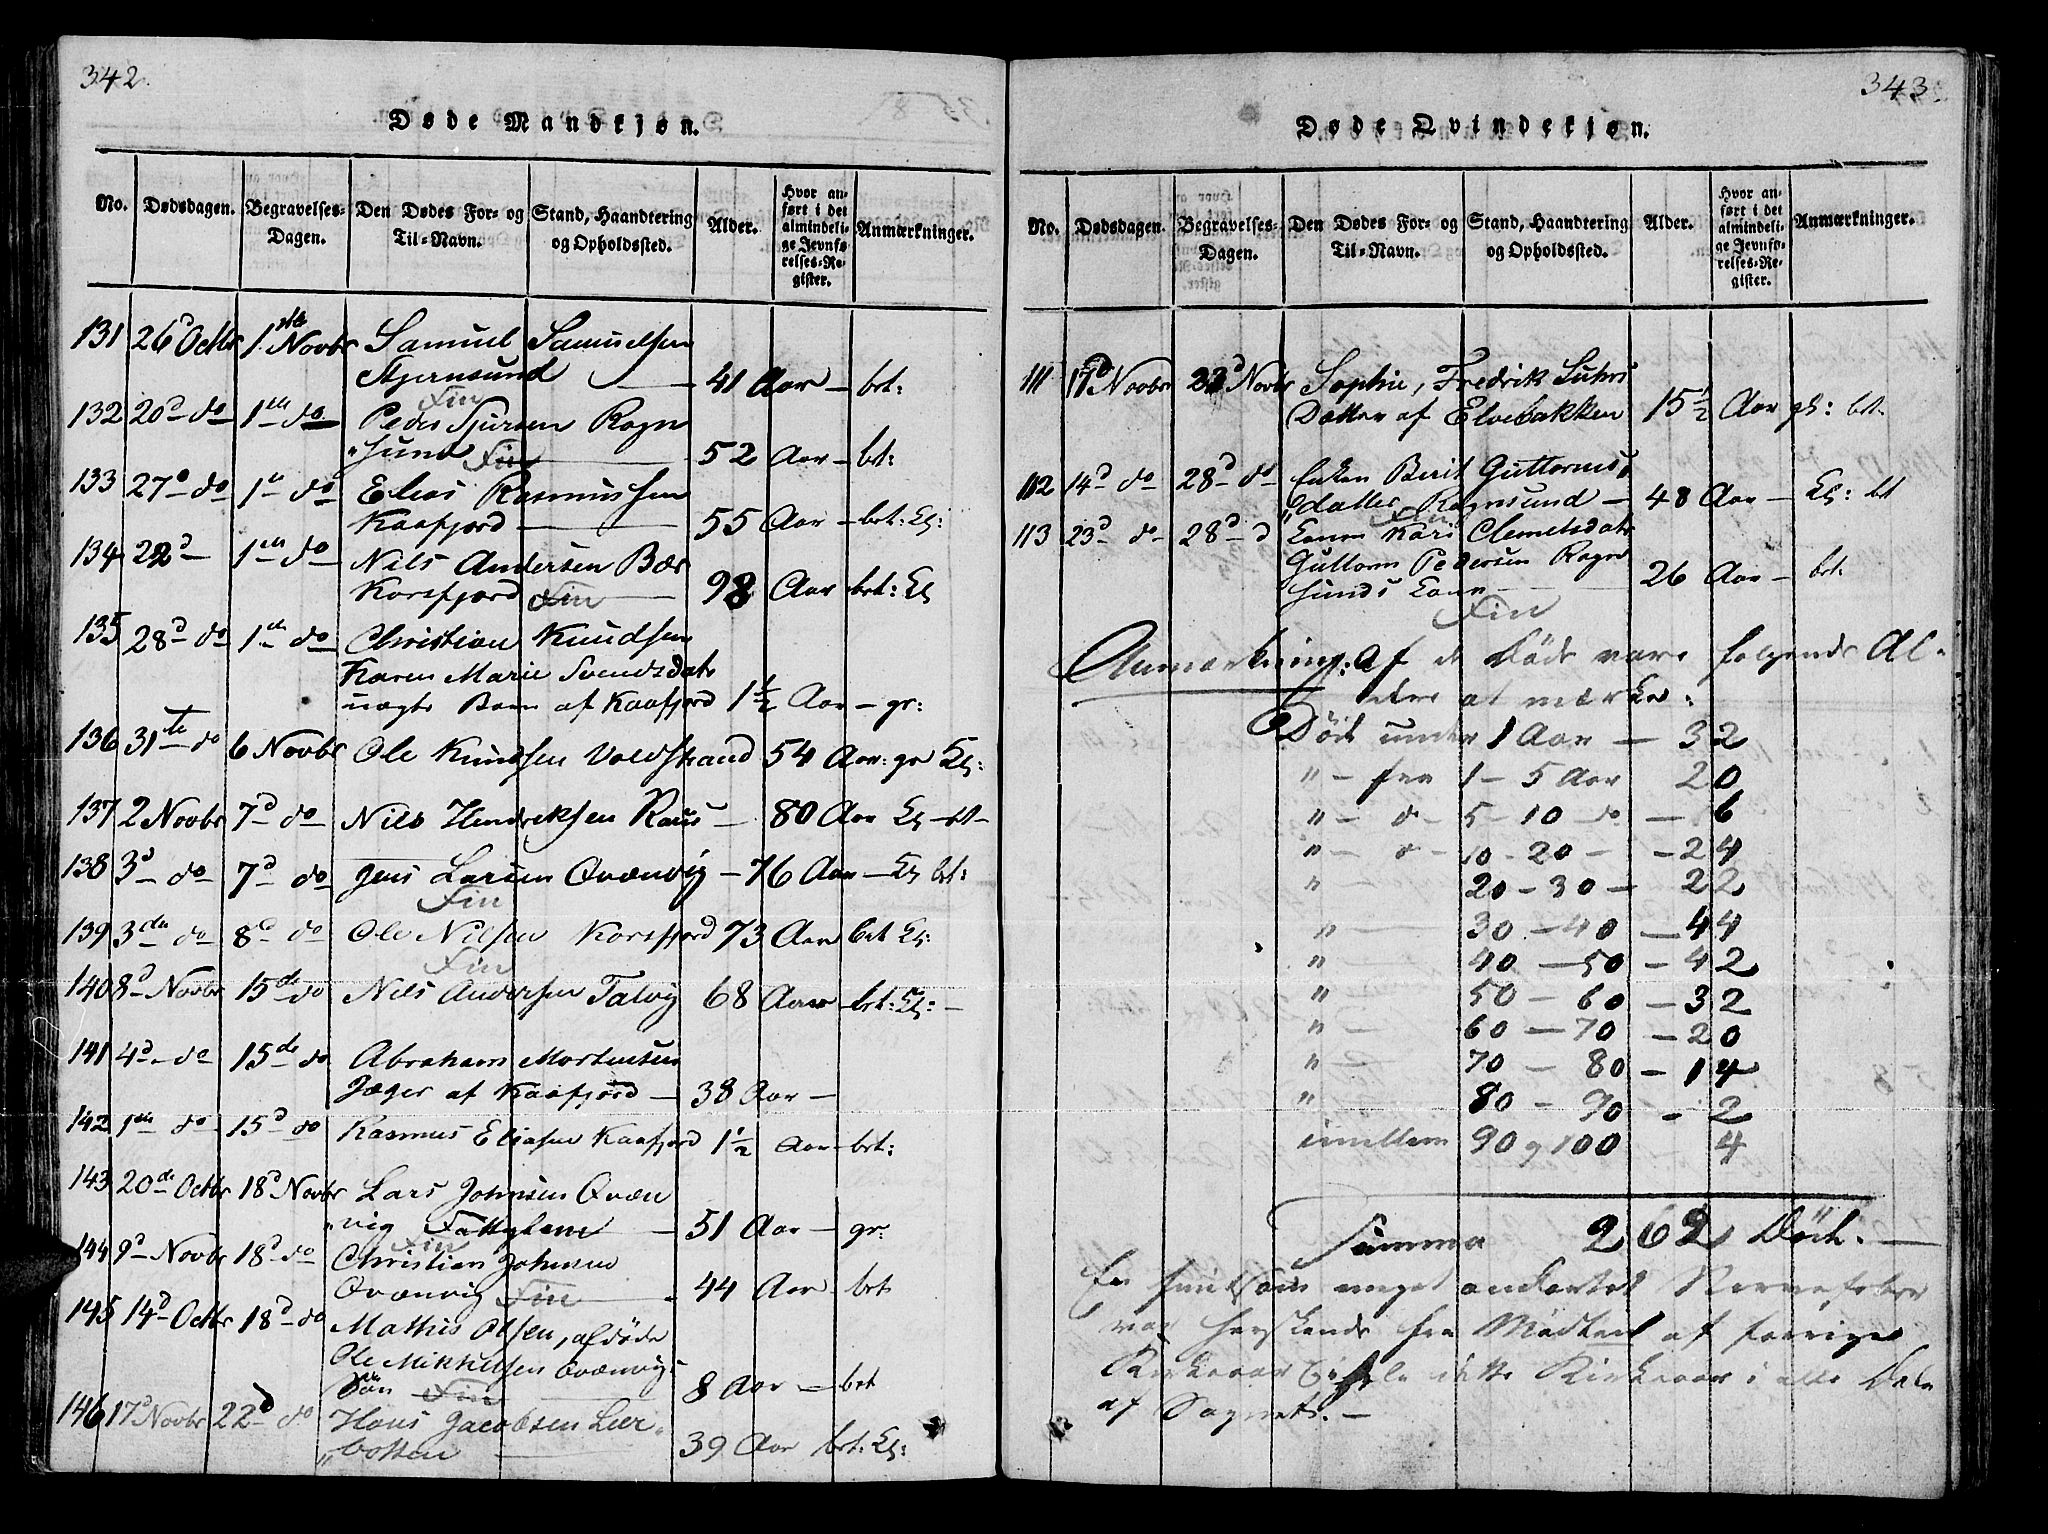 342.
Døde Mandkjøn.
No. Dødsdagen. Begravelses-Dagen. Den Dødes For- og Til-Navn. Stand, Haandtering og Opholdssted. Alder. Hvor anført i det almindelige Jevnførelses-Register. Anmærkninger.
131 26d Octbr 1ste Novbr Samuel Samuelsen
Stjernsund — 41 Aar — brt:
Fin
132 20d do 1ste do Peder Sjursen Rogn
"sund Fin 52 Aar — brt:
133 27d do 1te do Elias Rasmussen
Kaafjord — 55 Aar — brt: Kl:
134 22d — 1ste do Nils Andersen Bær
Korsfjord Fin — 98 Aar brt: Kl
135 28d do 1ste do Christian Knudsen
Karen Marie Svendsdatr
uægte Barn af Kaafjord 1½ Aar — gr:
136 31te do 6 Novbr Ole Knudsen Voldstrand 54 Aar: gr Kl:
137 2 Novbr 7d do Nils Hendriksen Raus — 80 Aar Kl — brt —
138 3d do 7d do Jens Larsen Qvænvig — 76 Aar — Kl brt:
Fin
139 3die do 8d do Ole Nilsen Korsfjord 73 Aar brt Kl:
Fin
140 8d Novbr 15de do Nils Andersen Talvig 68 Aar — brt: Kl: —
141 4d do 15de do Abraham Mortensen
Jæger af Kaafjord — 38 Aar —
142 1ste do 15d do Rasmus Eliasen Kaafjord 1½ Aar — brt:
143 20de Octbr 18d Novbr Lars Johnsen Qvæn
"vig Fattiglem — 51 Aar — gr:
Fin
144 9d Novbr 18d do Christian Johnsen
Qvænvig Fin — 44 Aar — brt
145 14d Octbr 18d do Mathis Olsen, afdøde
Ole Mikkelsen Qvænvig
Søn Fin 8 Aar — brt
146 17d Novbr 22d do Hans Jacobsen Leir
"botten — 39 Aar brt: Kl:
343.
Døde Qvindekjøn.
No. Dødsdagen. Begravelses-Dagen. Den Dødes For- og Til-Navn. Stand, Haandtering og Opholdssted. Alder. Hvor anført i det almindelige Jevnførelses-Register. Anmærkninger.
111 17d Novbr 22d Novbr Sophie, Fredrik Luhrs
Datter af Elvebakken 15½ Aar gl: brt.
112 14d do 28d do Enken Berit Guttorms
"datter Rognsund — 48 Aar — Kl: brt
Fin
113 23d do 28d d Konen Kari Clemetsdatr
Guttorm Pedersen Rogn
sunds Kone — 26 Aar — brt:
Fin
Anmærkning: Af de Døde vare følgende Al-
dre at mærke:
Døde under 1 Aar — 32
" — fra 1 — 5 Aar 20
" — d — 5 — 10 do — 6
" — d — 10 — 20 — — 24
" — 20 — 30 — 22
" — 30 — 40 — 44
" — 40 — 50 — 42
" — 50 — 60 — 32
" — 60 — 70 — 20
" — 70 — 80 — 14
" — 80 — 90 — 2
imellem 90 og 100 4
Summa 262 Døde. —
En hund som meget ondartet Nervefeber
var herskende fra Midten af forrige
Kirkeaar hele dette Kirkeaar i alle Dele
af Sognet. —